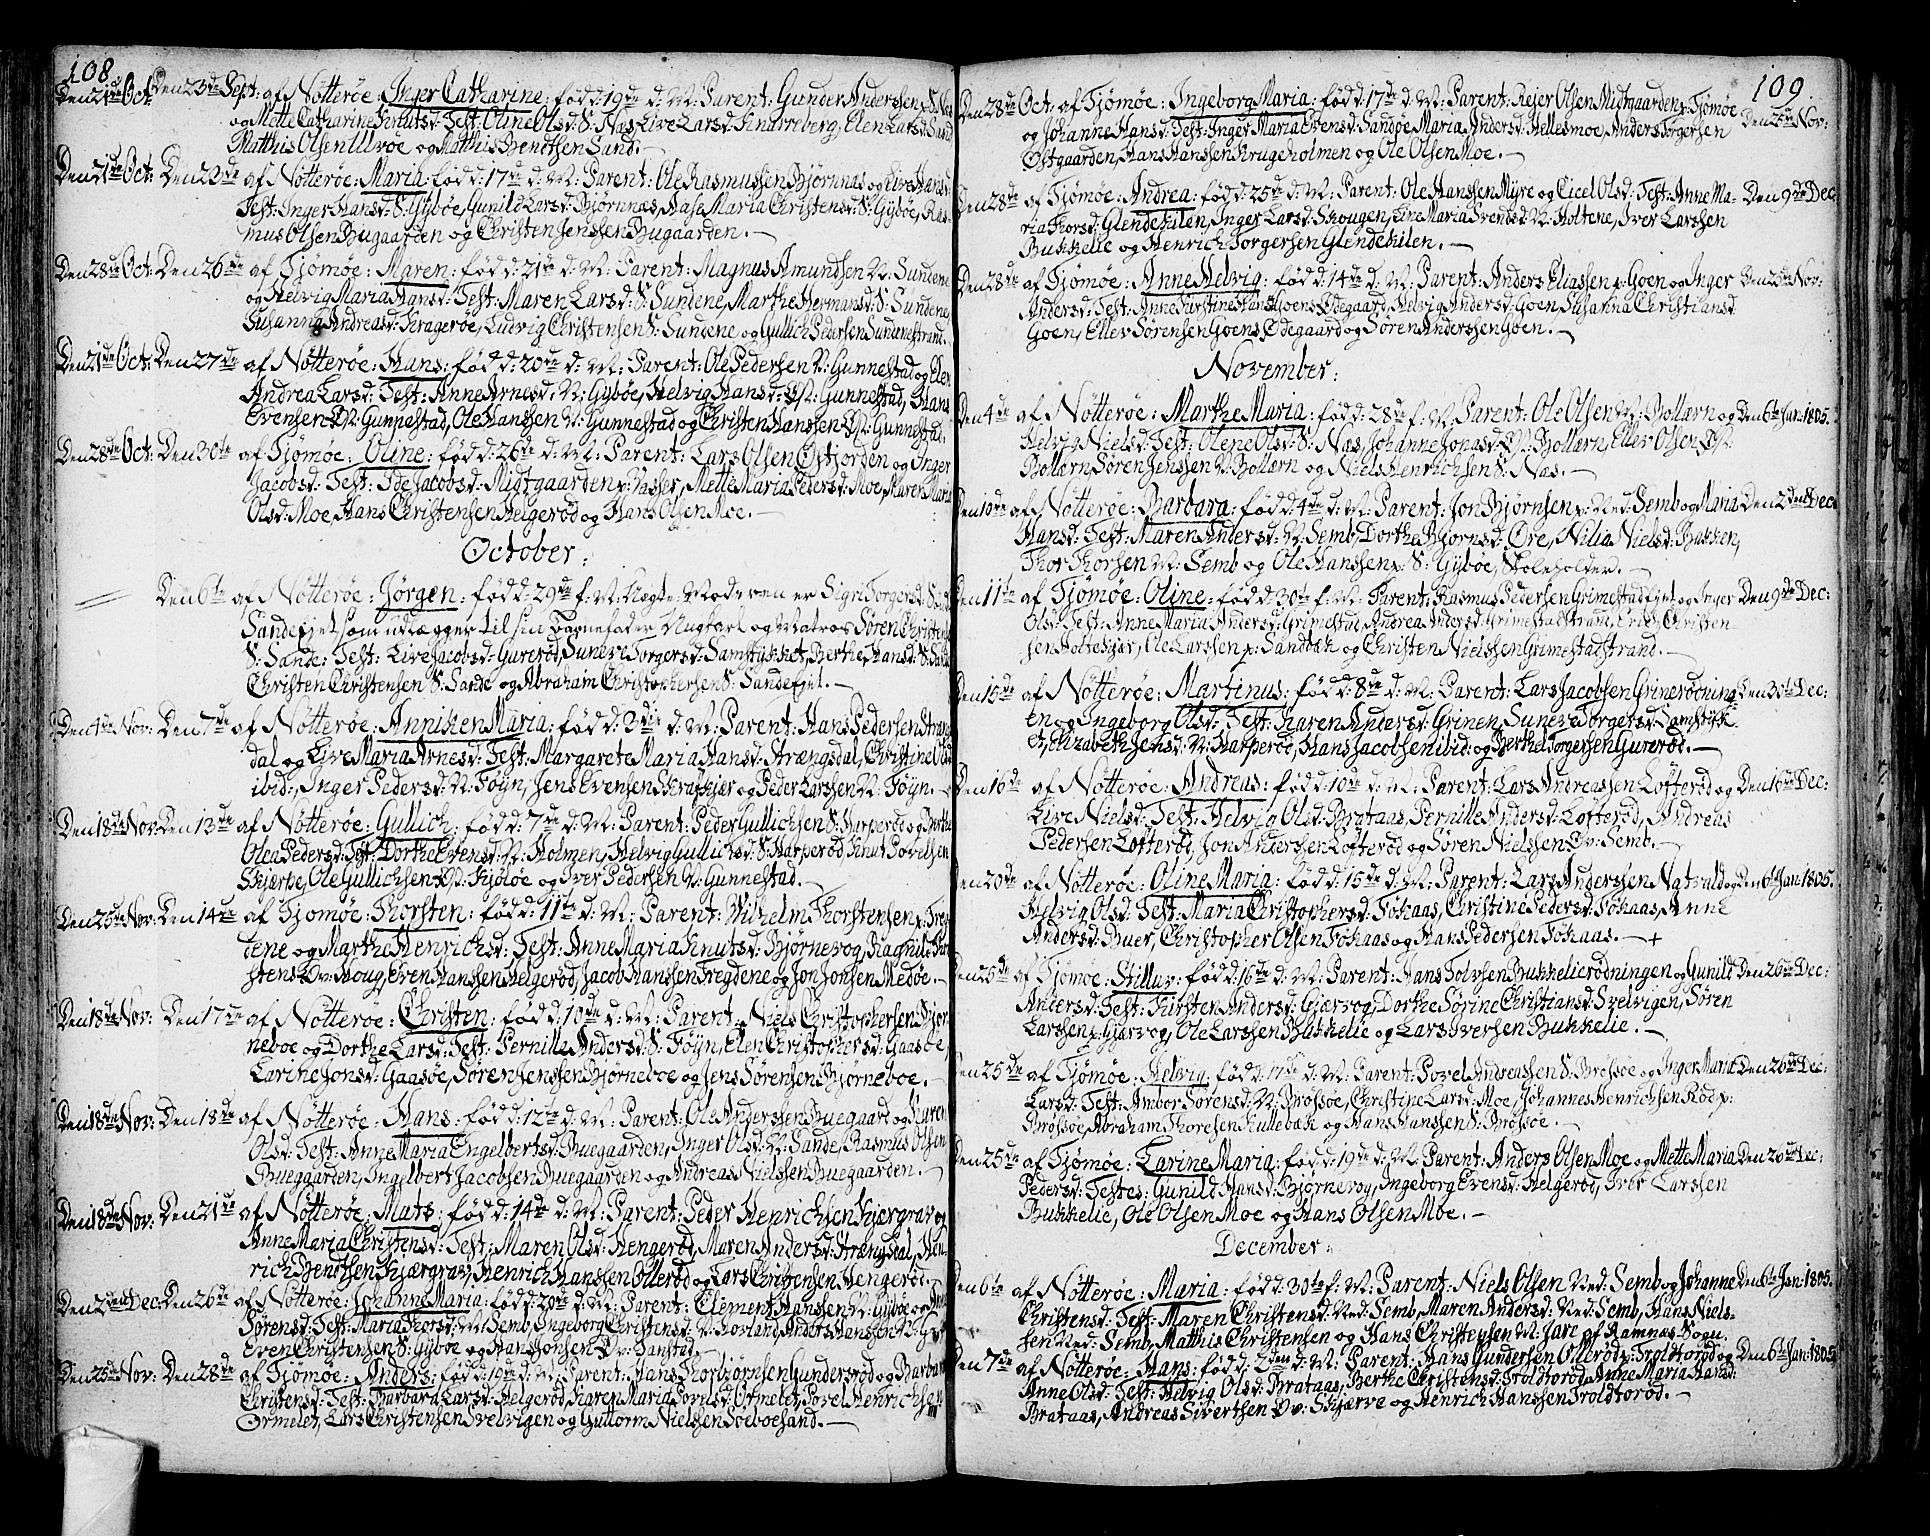 108
Den 21de Oct: Den 23de Sept: af Nötterøe: Inger Catharine: född: 19de d: M: Parent: Gunder Anderssen S: Næs
og Mette Catharine Knutsd: Test: Oline Olsd: S: Næs, Live Larsd: Knarreberg, Elen Larsd: Sand,
Matthis Olsen Ulvøe og Matthis Bendtsen Sand. —
Den 21de Oct: Den 23de af Nötterøe: Maria: född: 17de d: M: Parent: Ole Rasmussen Bjørnnæs og Live Hansd:
Test: Inger Hansd: S: Gybøe, Gunild Larsd: Bjørnnæs, Aase Maria Christensd: S: Gybøe, Ras-
mus Olsen Bugaarden og Christen Jenssen Bugaarden. —
Den 28de Oct: Den 26de af Tjömöe: Maren: född: 21de d: M: Parent: Magnus Amundsen N: Sundene
og Helvig Maria Hansd: Test: Maren Larsd: S: Sundene, Marthe Hermansd: S: Sundene,
Susanna Andreasd: Kragerøe, Ludvig Christensen S: Sundene og Gullich Pedersen Sundenestrand.
Den 21de Oct: Den 27de af Nötterøe: Hans: född: 20de d: M: Parent: Ole Pedersen N: Gunnestad og Elen
Andrea Larsd: Test: Anne Arnesd: N: Gybøe, Helvig Hansd: Ø: Gunnestad, Hans
Evensen Ø: Gunnestad, Ole Hanssen N: Gunnestad og Christen Hanssen Ø: Gunnestad.
Den 28de Oct: Den 30te af Tjömöe: Oline: född: 26de d: M: Parent: Lars Olsen Østjorden og Inger
Jacobsd: Test: Ide Jacobsd: Midtgaarden p: Vasser, Mette Maria Pedersd: Moe, Maren Maria
Olsd: Moe, Hans Christensen Helgerød og Hans Olsen Moe. —
October:
Den 6te af Nötterøe: Jørgen: född: 29de f: M: Uægte. Moderen er Sigri Torgersd: S: Sande
Sandefjet som udlægger til sin Barnefader Ungkarl og Matros Søren Christens:
S: Sande: Test: Live Jacobsd: Gurerød, Suneve Torgersd: Samstykket, Berthe Hansd: S: Sande
Christen Christensen S: Sande og Abraham Christophersen S: Sandefjet. —
Den 4de Nov: Den 7de af Nötterøe: Anniken Maria: född: 3die d: M: Parent: Hans Pedersen Stræns-
dal og Live Maria Arnesd: Test: Margarete Maria Hansd: Strængsdal, Christine Olsd:
ibid:, Inger Pedersd: N: Föyn, Jens Evensen Skrafkjær og Peder Larssen N: Föyn. —
Den 18de Nov: Den 13de af Nötterøe: Gullich: född: 7de d: M: Parent: Peder Gullichsen S: Harperød og Berthe
Olea Pedersd: Test: Dorthe Evensd: N: Holmen, Helvig Gullichsd: S: Harperød, Knut Povelsen
Skjærpe, Ole Gullichsen Ø: Kjöløe og Iver Pedersen N: Gunnestad. —
Den 25de Nov: Den 14de af Tjömöe: Thorsten: född: 11te d: M: Parent: Wilhelm Thorstensen p: Treg-
dene og Marthe Henrichsd: Test: Anne Maria Knutsd: Bjørnevog, Ragnild Thor-
stensd: Øv: Houg, Even Hanssen Helgerød, Jacob Hanssen Tregdene og Jon Jonsen Medöe. —
Den 18de Nov: Den 17de af Nötterøe: Christen: född: 10de d: M: Parent: Niels Christophersen Bjør-
neboe og Dorthe Larsd: Test: Pernille Andersd: S: Föyn, Elen Christophersd: Gaasøe,
Larthe Jonsd: Gaasøe, Søren Jenssen Bjørneboe og Jens Sørensen Bjørneboe. —
Den 18de Nov: Den 18de af Nötterøe: Hans: född: 12te d: M: Parent: Ole Anderssen Buegaard og Karen
Olsd: Test: Anne Maria Engelbertsd: Buegaarden, Inger Olsd: N: Sande, Rasmus Olsen
Buegaarden, Ingelbert Jacobsen Buegaarden og Andreas Nielssen Buegaarden. —
Den 18de Nov: Den 21de af Nötterøe: Mats: född: 14de d: M: Parent: Peder Henrichsen Kjærgrav og
Anne Maria Christensd: Test: Maren Olsd: Hengerød, Maren Andersd: Strængsdal, Hen-
rich Bendtsen Kjærgrav, Henrich Hanssen Ollerød og Lars Christensen Hengerød. —
Den 2den Dec: Den 26de af Nötterøe: Johanne Maria: född: 20de d: M: Parent: Clement Hanssen N: Gybøe og Anne
Sørensd: Test: Maria Thorsd: M: Semb, Ingeborg Christensd: N: Torland, Anders Hanssen N: Gybøe,
Even Christensen S: Gybøe og Hans Jonsen Øv: Sanstad. —
Den 25de Nov: Den 28de af Tjömöe: Anders: född: 19de d: M: Parent: Hans Thorbjørnsen Gundersrød og Barbara
Christensd: Test: Barbara Larsd: Helgerød, Karen Maria Jørnsd: Ormelet, Povel Henrichsen
Ormelet, Lars Christensen Svelvigen og Guttorm Nielssen Soeboesand. —
109.
Den 28de Oct: af Tjömöe: Ingeborg Maria: född: 17de d: M: Parent: Rejer Olsen Midtgaarden p: Tjömöe Den 25de Nov:
og Johanne Hansd: Test: Inger Maria Evensd: Sandöe, Maria Andersd: Hellesmoe, Anders Torgersen
Østgaarden, Hans Hanssen Krugeholmen og Ole Olsen Moe. —
Den 28de af Tjömöe: Andrea: född: 25de d: M: Parent: Ole Hanssen Myre og Cicel Olsd: Test: Anne Ma- Den 9de Dec:
ria Thorsd: Glendekilen, Inger Larsd: Skougen, Line Maria Svendsd: N: Holtene, Iver Larssen
Bukkelie og Henrich Torgersen Glendekilen. —
Den 28de af Tjömöe: Anne Helvig: född: 14de d: M: Parent: Anders Eliassen p: Goen og Inger Den 25de Nov:
Andersd: Test: Anne Kirstine Hansd: Goens Ødegaard, Helvig Andersd: Goen, Susanna Christiansd:
Goen, Eller Sörensen Goens Ødegaard og Sören Anderssen Goen. —
November:
Den 4de af Nötterøe: Marthe Maria: född: 28de f: M: Parent: Ole Olsen N: Bollærn og Den 6te Jan: 1805.
Helvig Nielsd: Test: Olene Olsd: S: Næs, Johanne Jonasd: Ø: Bollærn, Eller Olsen Ø:
Bollærn, Sören Jenssen N: Bollærn og Niels Henrichsen S: Næs. —
Den 10de af Nötterøe: Barbara: född: 4de d: M: Parent: Jon Bjørnsen p: Ned: Semb og Maria Den 2den Dec:
Hansd: Test: Maren Andersd: N: Semb, Dorthe Bjørnsd: Øre, Nilia Nielsd: Bakken,
Thor Thorsen M: Semb og Ole Hanssen p: S: Gybøe, Skoleholder. —
Den 11te af Tjömöe: Oline: född: 30te f: M: Parent: Rasmus Pedersen Grimestadfjet og Inger Den 9de Dec:
Olsd: Test: Anne Maria Andersd: Grimestad, Andrea Andersd: Grimestadstrand, Erich Christen-
sen Holtekjær, Ole Larssen p: Sandbæk og Christen Nielssen Grimestadstrand. —
Den 15de af Nötterøe: Martinus: född: 8de d: M: Parent: Lars Jacobsen Grinerødning- Den 30te Dec:
en og Ingeborg Olsd: Test: Karen Andersd: Grinen, Suneve Torgersd: Samstyk-
et, Elizabeth Jensd: N: Harperød, Hans Jacobsen ibid: og Berthel Torgersen Gurerød. —
Den 16de af Nötterøe: Andreas: född: 10de d: M: Parent: Lars Andreassen Løfterød og Den 16de Dec:
Live Nielsd: Test: Helvig Olsd: Brataas, Pernille Andersd: Løfterød, Andreas
Pedersen Løfterød, Jon Anderssen Løfterød og Søren Nielssen Øv: Semb. —
Den 20de af Nötterøe: Oline Maria: född: 15de d: M: Parent: Lars Anderssen Natvald og Den 6te Jan: 1805.
Helvig Olsd: Test: Maria Christophersd: Föhaas, Christine Pedersd: Föhaas, Anne
Andersd: Buer, Christopher Olsen Föhaas og Hans Pedersen Föhaas. — +
Den 25de af Tjömöe: Stillur: född: 16de d: M: Parent: Hans Tolvsen Bukkelierödningen og Gunild Den 26de Dec:
Andersd: Test: Kirsten Andersd: Gjærvog, Dorthe Sörine Christiansd: Svelvigen, Sören
Larssen p: Gjærvog, Ole Larssen Bukkelie og Lars Iversen Bukkelie. —
Den 25de af Tjömöe: Helvig: född: 17de d: M: Parent: Povel Andreassen S: Brøssøe og Inger Maria Den 26de Dec:
Larsd: Test: Ambor Sörensd: N: Brøssøe, Christine Larsd: Moe, Johannes Henrichsen Röd p:
Brøssøe, Abraham Thoresen Kullebæk og Hans Hanssen S: Brøssøe. —
Den 25de af Tjömöe: Karine Maria: född: 19de d: M: Parent: Anders Olsen Moe og Mette Maria Den 26de Dec:
Pedersd: Testes: Gunild Hansd: Bjørnevog, Ingeborg Evensd: Helgerød, Iver Larssen
Bukkelie, Ole Olsen Moe og Hans Olsen Moe. —
December:
Den 6te af Nötterøe: Maria: född: 30te f: M: Parent: Niels Olsen Ned: Semb og Johanne Den 6te Jan: 1805.
Christensd: Test: Maren Christensd: Ned: Semb, Maren Andersd: Ned: Semb, Hans Niels-
sen Ned: Semb, Matthis Christensen og Hans Christensen N: Jare af Ramnæs Sogn.
Den 7de af Nötterøe: Hans: född: 2den d: M: Parent: Hans Gundersen Ollerød p: Troldtorød og Den 6te Jan: 1805.
Anne Olsd: Test: Helvig Olsd: Brataas, Berthe Christensd: Troldtorød, Anne Maria Hansd:
Brataas, Andreas Sivertsen Øv: Skjærve og Henrich Hanssen Troldtorød. —